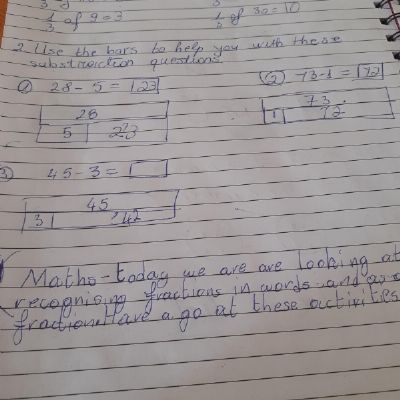 1/3 of 9 = 3
1/3 of 30 = 10
2. Use the bars to help you with these
substraction questions.
① 28 - 5 = 23
② 73-1 = 72
28
5 23
73
1 72
③ 45 - 3 =
45
3 42
Maths - today we are are looking at
recognising fractions in words and as a
fraction. Have a go at these activities